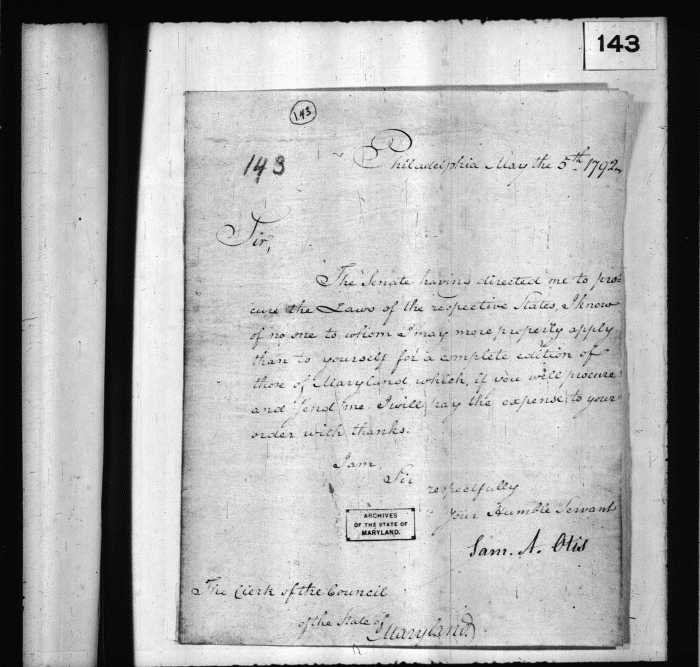 143
143
143
Philadelphia May the 5th 1792
Sir,
The Senate having directed me to pro=
cure the Laws of the respective States, I know
of no one to whom I may more properly apply
than to yourself for a complete edition of
those of Maryland, which, if you will procure
and send me I will pay the expense to your
order with thanks.
I am
Sir
respectfully
your Humble Servant
Sam. A. Otis
ARCHIVES
OF THE STATE OF
MARYLAND.
The Clerk of the Council
of the State of Maryland